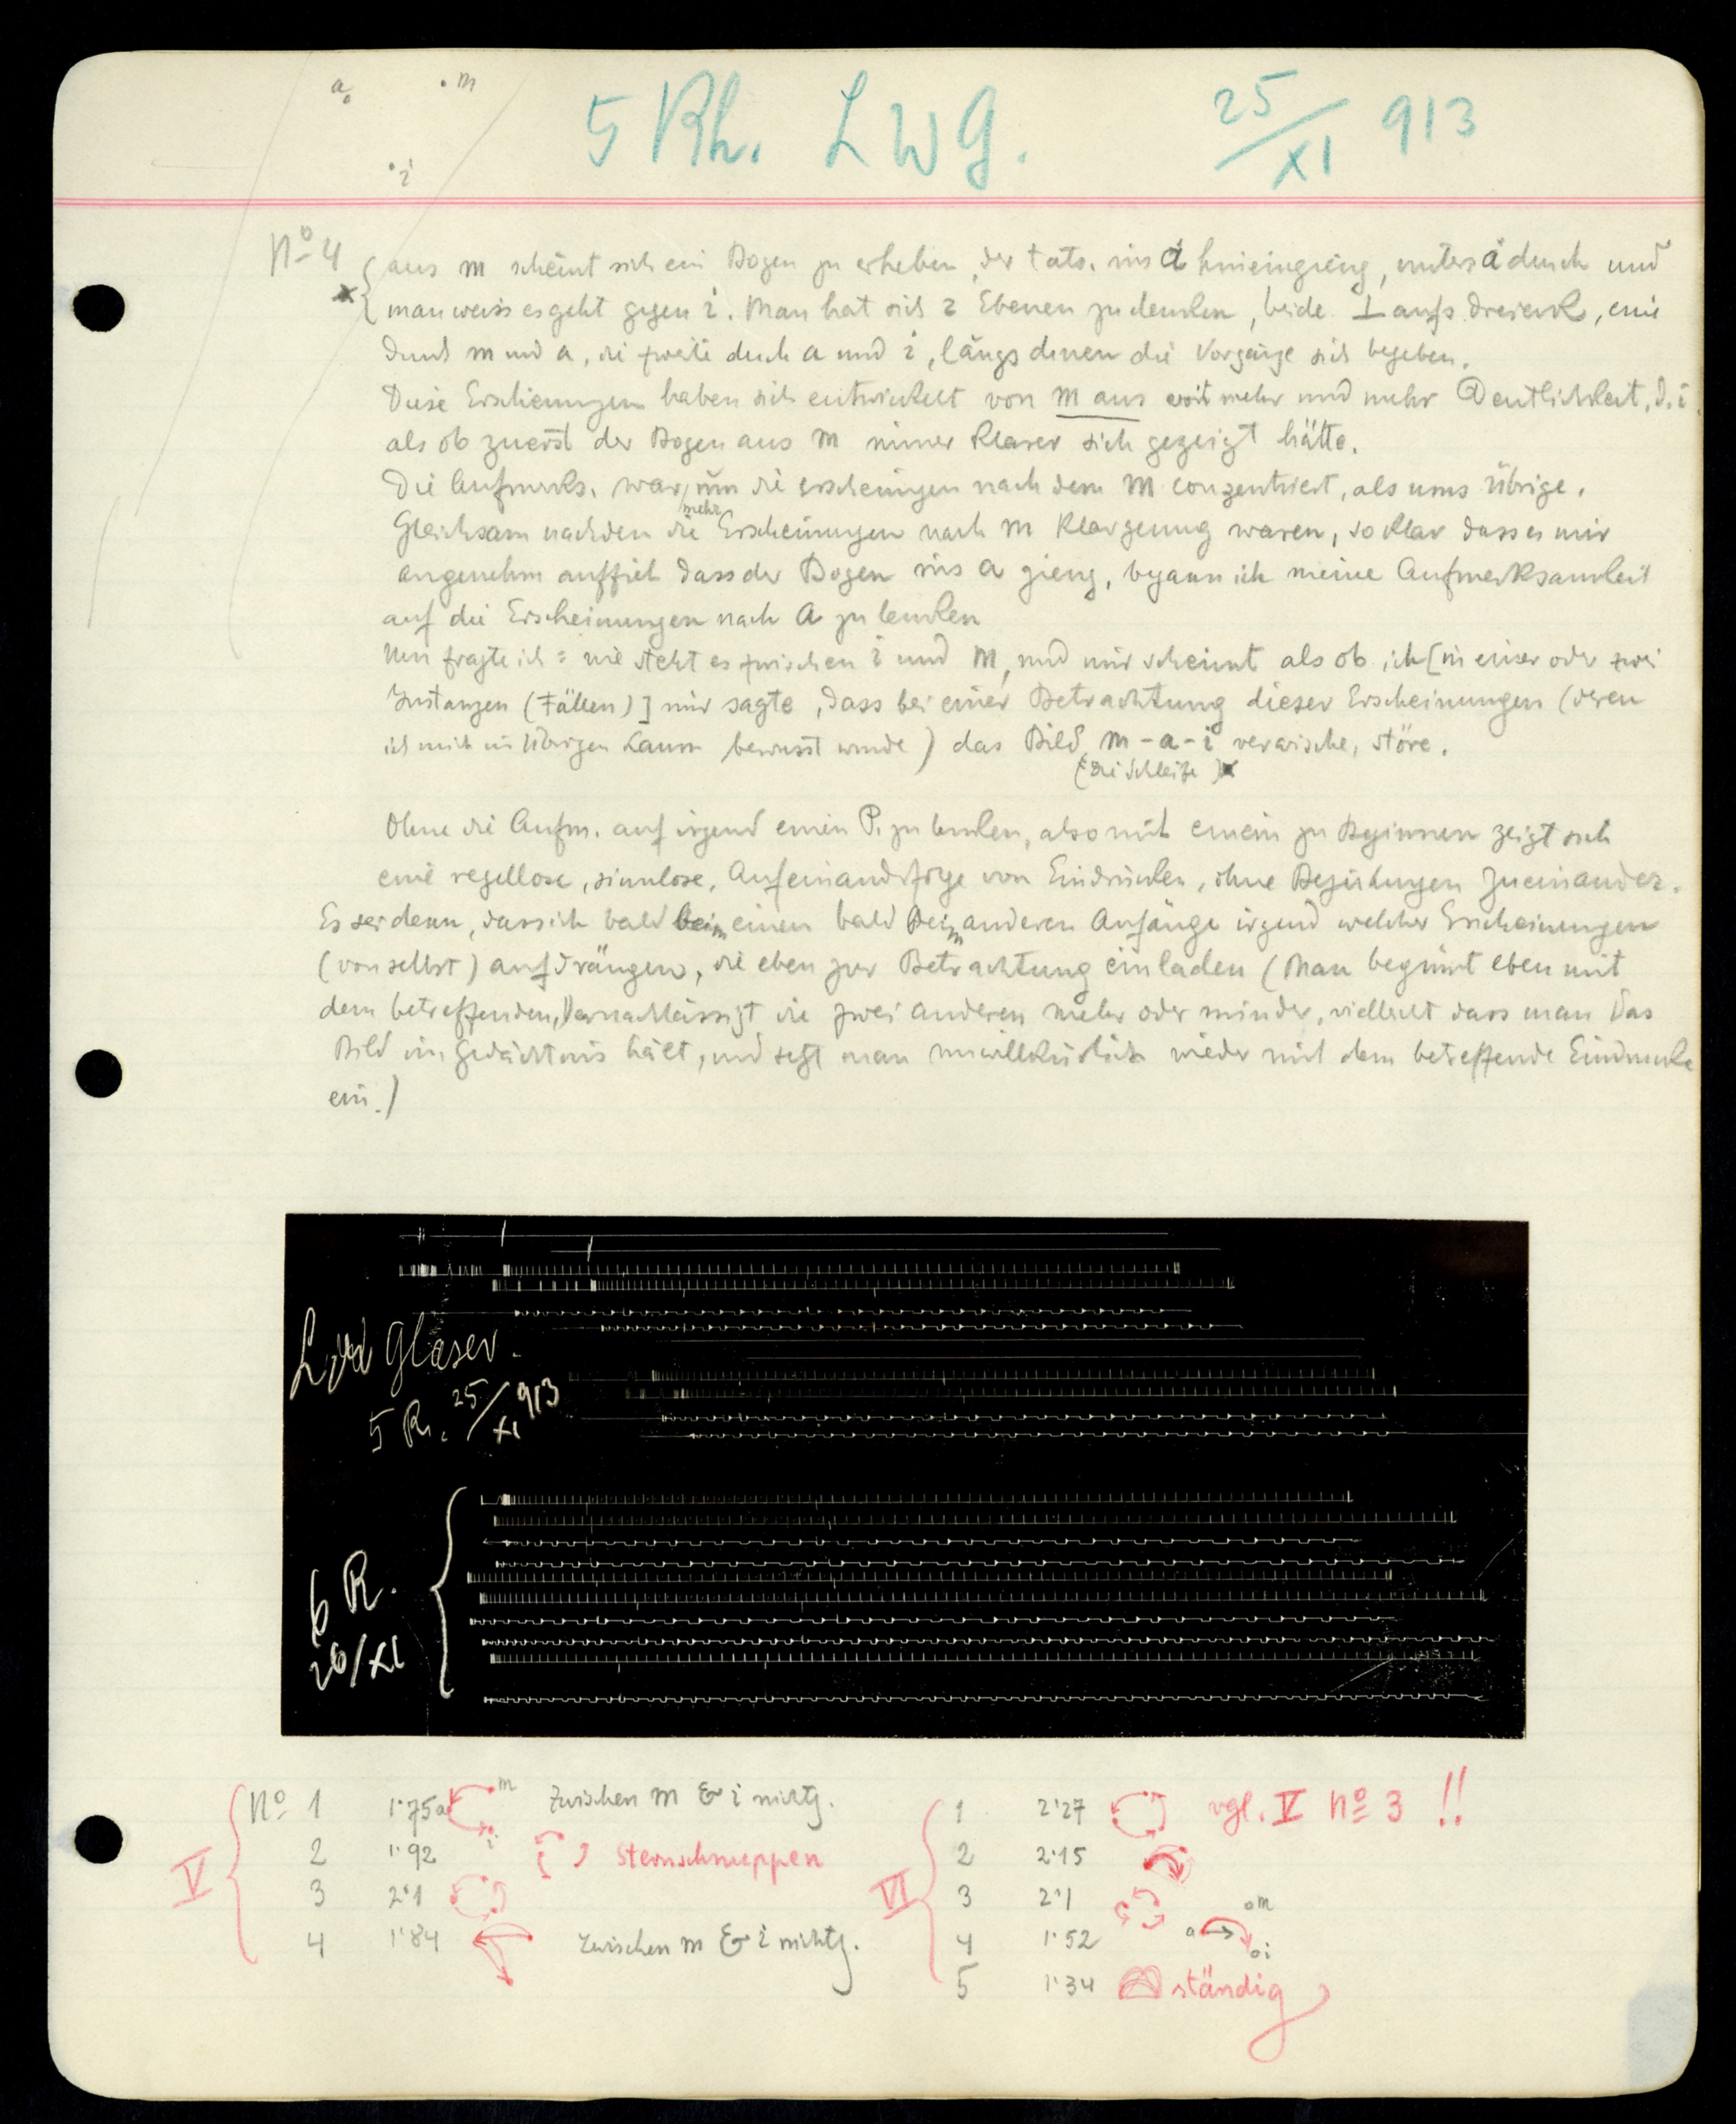 a • m
5 Rh. L W G. 25/XI 913
• i
No 4 aus m scheint sich ein Bogen zu erheben, der tats. ins a hineingieng, unters a durch und
man weiss es geht gegen i. Man hat sich 2 Ebenen zu denken, beide ⊥ aufs Dreieck, eine
durch m und a, die zweite durch a und i, längs denen die Vorgänge sich begeben.
Diese Erscheinungen haben sich entwickelt von m aus mit mehr und mehr Deutlichkeit, d. i.
als ob zuerst der Bogen aus m immer klarer sich gezeigt hätte.
Die Aufmerks. war mehr um die Erscheinungen nach dem m conzentriert, als ums Übrige.
Gleichsam nachdem die Erscheinungen nach m klar genug waren, so klar dass es mir
angenehm auffiel dass der Bogen ins a gieng, begann ich meine Aufmerksamkeit
auf die Erscheinungen nach a zu lenken
Nun fragte ich: wie steht es zwischen i und m, und mir scheint als ob ich [in einer oder zwei
Instanzen (Fällen)] mir sagte, dass bei einer Betrachtung dieser Erscheinungen (deren
ich mich im Übrigen kaum bewusst wurde) das Bild m-a-i verwische, störe.
(die Schleife) x
Ohne die Aufm. auf irgend einen P. zu lenken, also mit einem zu Beginnen zeigt sich
eine regellose, sinnlose, Aufeinanderfolge von Eindrücken, ohne Beziehungen zueinander.
Es sei denn, dass sich bald beim einen bald beim anderen Anfänge irgend welcher Erscheinungen
(von selbst) aufdrängen, die eben zur Betrachtung einladen (Man beginnt eben mit
dem betreffenden, vernachlässigt die zwei anderen mehr oder minder, vielleicht dass man das
Bild im Gedächtnis hält, und setzt man unwillkürlich wieder mit dem betreffende Eindrucke
ein.)
Lwd Glaser.
5 R. 25/XI 913
6 R.
26/XI
V
No 1 1·75 a m i Zwischen m & i nichts.
2 1·92 Sternschnuppen
3 2·1
4 1·84 Zwischen m & i nichts.
VI
1 2·27 vgl. V No 3 !!
2 2·15
3 2·1
4 1·52 a m i
5 1·34 ständig